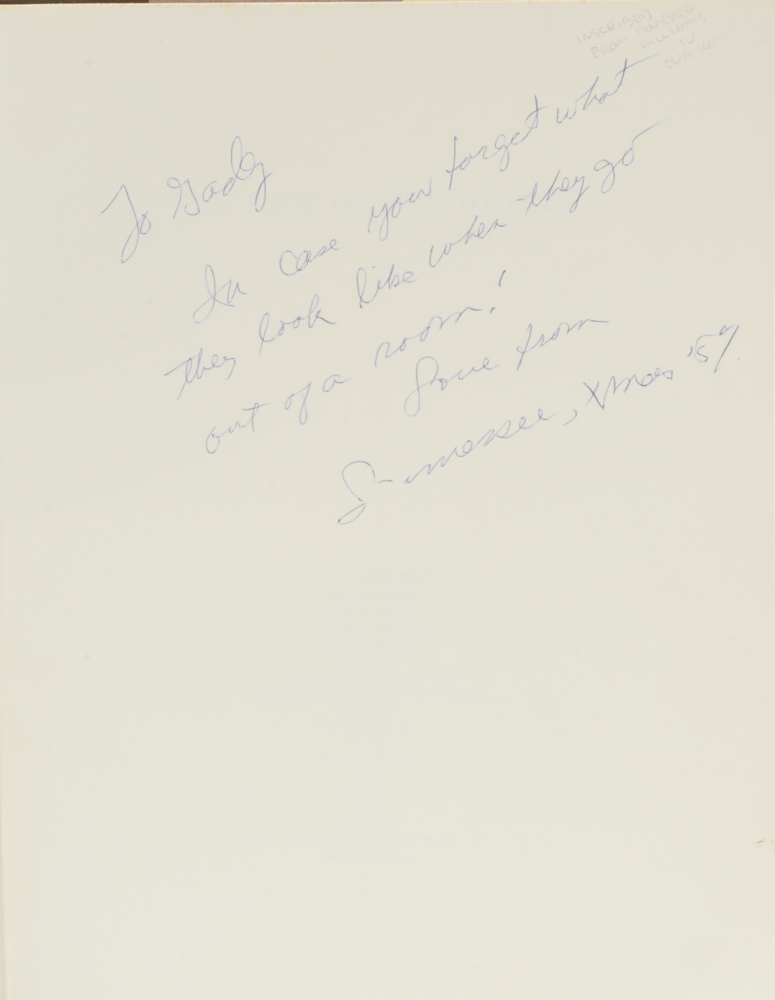 INSCRIBED
FROM TENNESSEE
WILLIAMS
TO
To Gady
In case you forget what
they look like when they go
out of a room!
Love from
Tennessee, Xmas '57